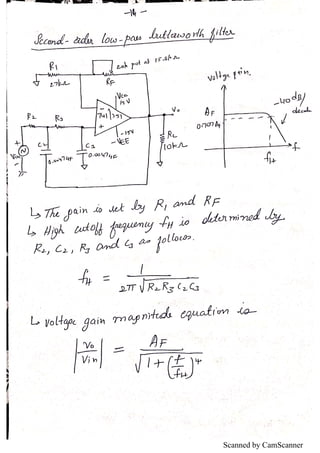 -14-
Second-order low-pass butterworth filter
R1
20k pot at 15.8kΩ
RF
27kΩ
+VCC
15V
R2
R3
741/351
Vo
-15V
-VEE
RL
10kΩ
C2
0.0047µF
C3
0.0047µF
Vin
voltage gain
AF
0.707AF
-40dB/
decade
fH
f
↳ The gain is set by R1 and RF
↳ High cutoff frequency fH is determined by
R2, C2, R3 and C3 as follows.
fH = 1 / 2π √R2R3C2C3
↳ Voltage gain magnitude equation is
|Vo/Vin| = AF / √1+(f/fH)^4
Scanned by CamScanner